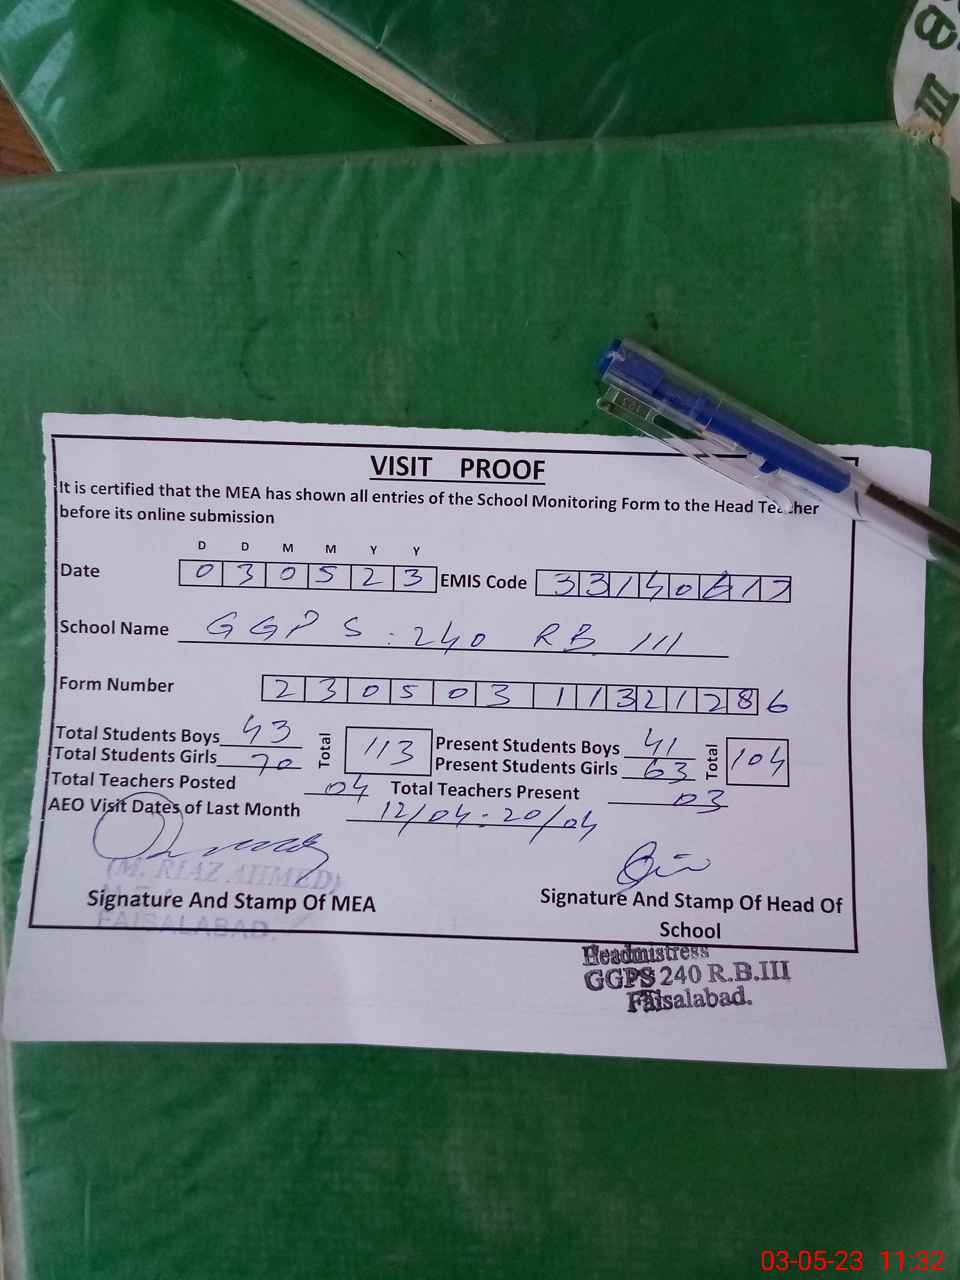 VISIT PROOF
It is certified that the MEA has shown all entries of the School Monitoring Form to the Head Teacher
before its online submission
D D M M Y Y
Date 030523 EMIS Code 33140617
School Name GGPS. 240 RB III
Form Number 23050311321286
Total Students Boys 43 Total 113 Present Students Boys 41 Total 104
Total Students Girls 70 Present Students Girls 63
Total Teachers Posted 04 Total Teachers Present 03
AEO Visit Dates of Last Month 12/04 - 20/04
(M. RIAZ AHMED)
Signature And Stamp Of MEA
FAISALABAD.
Signature And Stamp Of Head Of
School
Headmistress
GGPS 240 R.B.III
Faisalabad.
03-05-23 11:32